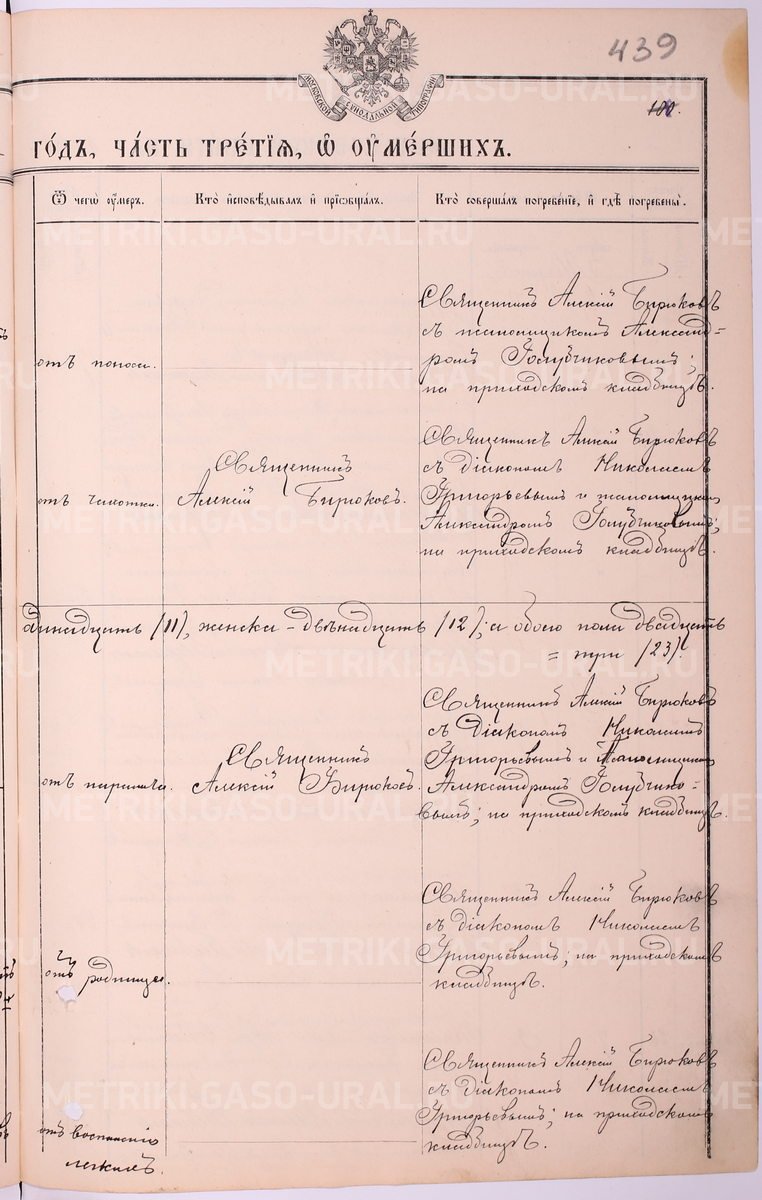 439
100.
МОСКОВСКОЙ СѴНОДАЛЬНОЙ ТИПОГРАФІИ
го́дъ, ча́сть тре́тїѧ, ѡ҆ ᲂу҆ме́ршихъ.
Ѿ чегѡ̀ ᲂу҆́меръ.
Кто̀ и҆сповѣ́дывалъ и҆ прїѡбща́лъ.
Кто̀ соверша́лъ погребе́нїе, и҆ гдѣ̀ погребены̀.
отъ поноса.
Священникъ Алексій Бирюковъ
съ псаломщикомъ Александ=
ромъ Голубчиковымъ;
на приходскомъ кладбищѣ.
отъ чахотки.
Священникъ
Алексій Бирюковъ.
Священникъ Алексій Бирюковъ
съ діакономъ Николаемъ
Григорьевымъ и псаломщикомъ
Александромъ Голубчиковымъ;
на приходскомъ кладбищѣ.
динадцать (11), женска – двѣнадцать (12), а обоего пола двадцать
= три (23).
отъ паралича.
Священникъ
Алексій Бирюковъ.
Священникъ Алексій Бирюковъ
съ діакономъ Николаемъ
Григорьевымъ и псаломщикомъ
Александромъ Голубчико=
вымъ; на приходскомъ кладбищѣ.
отъ родимца.
Священникъ Алексій Бирюковъ
съ діакономъ Николаемъ
Григорьевымъ; на приходскомъ
кладбищѣ.
отъ воспаленія
легкихъ.
Священникъ Алексій Бирюковъ
съ діакономъ Николаемъ
Григорьевымъ; на приходскомъ
кладбищѣ.
METRIKI.GASO-URAL.RU